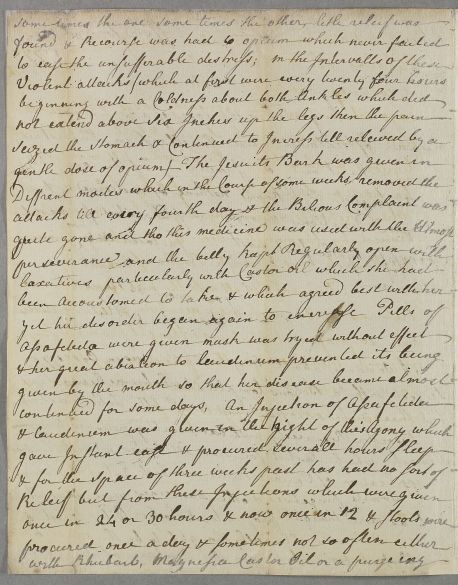 some times the one some times the other, little releif was
found & Recourse was had to opium which never failed
to ease the unsufferable distress; in the Intervalls of these
Violent attacks (which at first were every twenty four hours
beginning with a Coldness about both Ankles which did
not extend above Six Inches up the legs then the pain
seized the Stomach & Continued to Incress till releived by a
gentle dose of opium) The Jesuits Bark was given in
Diffrent modes which in the Course of some weeks, removed the
attacks till every fourth day & the Bilious Complaint was
quite gone and tho this medicine was used with the Utmost
perseverance and the belly keept Regularly open with
Laxatives particularly with Castor Oil which she had
been accustomed to take & which agreed best with her
yet his desorder began again to encrease Pills of
Assafetida were given musk was tryed without effect
& her great to Laudinum prevented its being
given by the mouth so that her disease became almost
continued for some days, An Injection of Assafetida
& Laudinum was given in the hight of this agony which
gave Instant ease & procured severall hours Sleep
& for the space of three weeks past has had no sort of
Releif but from these Injections which were given
once in 24 or 30 hours & now once in 12 & Stools were
procured once a day & sometimes not so often either
with Rhubarb, Magnesia Castor Oil or a purgeing